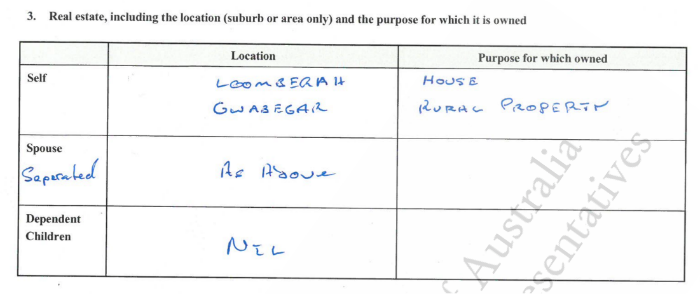 3. Real estate, including the location (suburb or area only) and the purpose for which it is owned
Location Purpose for which owned
Self LOOMBERAH HOUSE
GWABEGAR RURAL PROPERTY
Spouse
Seperated As Above
Dependent
Children
NIL
Australia
esentatives